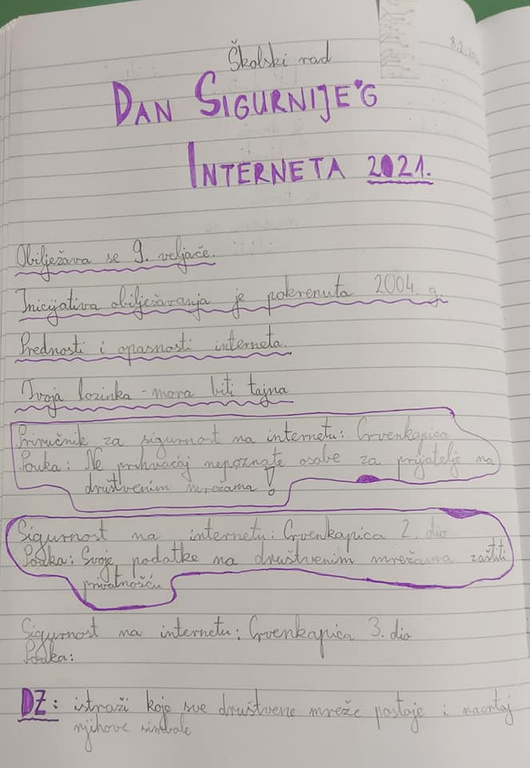 8.2.
Školski rad
DAN SIGURNIJE'G
INTERNETA 2021.
Obilježava se 9. veljače.
Inicijativa obilježavanja je pokrenuta 2004. g.
Prednosti i opasnosti interneta.
Tvoja lozinka - mora biti tajna
Priručnik za sigurnost na internetu: Crvenkapica
Pouka: Ne prihvaćaj nepoznate osobe za prijatelje na
društvenim mrežama!
Sigurnost na internetu: Crvenkapica 2. dio
Pouka: Svoje podatke na društvenim mrežama zaštiti
privatnošću
Sigurnost na internetu: Crvenkapica 3. dio
Pouka:
DZ: istraži koje sve društvene mreže postoje i nacrtaj
njihove simbole